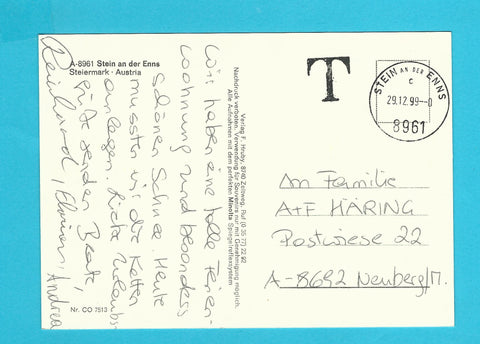 A-8961 Stein an der Enns
Steiermark · Austria
Wir haben eine tolle Ferien-
wohnung und besonders
schönen Schnee. Heute
mussten wir die Ketten
anlegen. Liebe Urlaubs-
grüße senden Beate,
Reinhard, Andrea
Nr. CO 7513
Verlag F. Hruby, 8740 Zeltweg, Ruf (0 35 77) 22 92
Nachdruck verboten. Verwendung für Souvenirs nur mit Genehmigung möglich.
Alle Aufnahmen mit dem perfekten Minolta Spiegelreflexsystem
T
STEIN AN DER ENNS
c
29.12.99-0
8961
An Familie
A+F HÄRING
Postwiese 22
A-8692 Neuberg/M.